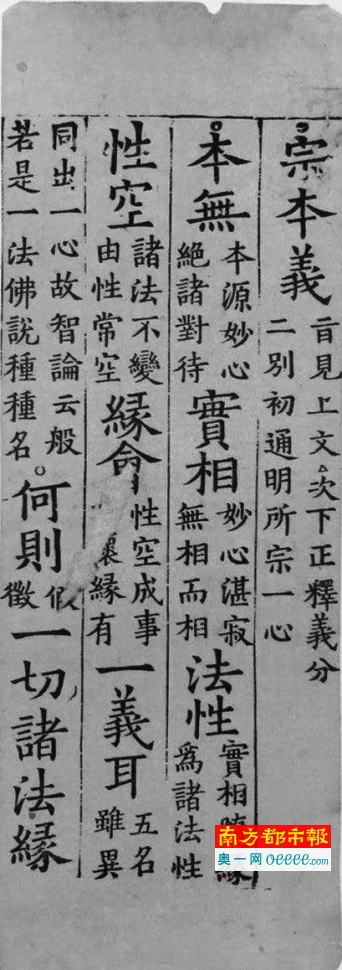 宗本義旨見上文次下正釋義分二別初通明所宗一心
本無本源妙心絕諸對待實相妙心湛寂無相而相法性實相緣爲諸法性
性空諸法不變由性常空緣會性空成事緣有一義耳五名雖異
同出一心故智論云般若是一法佛說種種名。何則假徵一切諸法緣
南方都市報
奥一网 oeeee.com